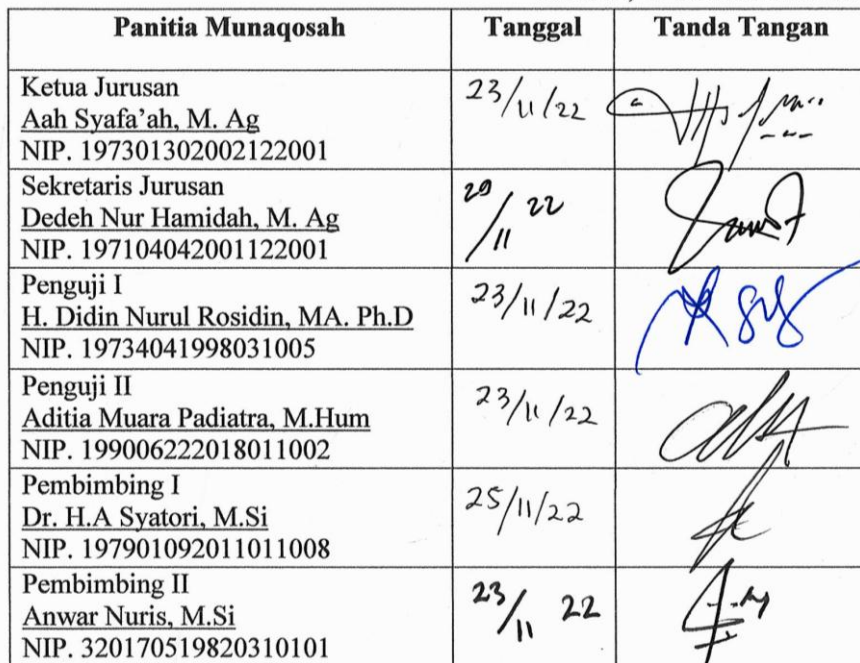 Panitia Munaqosah Tanggal Tanda Tangan
Ketua Jurusan
Aah Syafa'ah, M. Ag
NIP. 197301302002122001
23/11/22
Sekretaris Jurusan
Dedeh Nur Hamidah, M. Ag
NIP. 197104042001122001
29/11 22
Penguji I
H. Didin Nurul Rosidin, MA. Ph.D
NIP. 19734041998031005
23/11/22
Penguji II
Aditia Muara Padiatra, M.Hum
NIP. 199006222018011002
23/11/22
Pembimbing I
Dr. H.A Syatori, M.Si
NIP. 197901092011011008
25/11/22
Pembimbing II
Anwar Nuris, M.Si
NIP. 320170519820310101
23/11 22